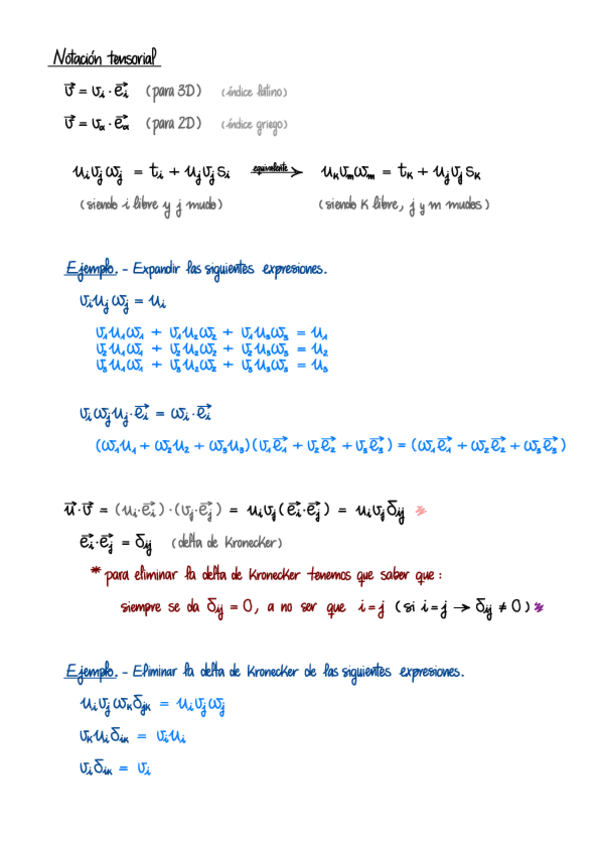 Notación tensorial
v⃗ = vᵢ · e⃗ᵢ (para 3D) (índice latino)
v⃗ = vα · e⃗α (para 2D) (índice griego)
uᵢvⱼωⱼ = tᵢ + uⱼvⱼsᵢ equivalente → uₖvₘωₘ = tₖ + uⱼvⱼsₖ
(siendo i libre y j mudo) (siendo k libre, j y m mudos)
Ejemplo.- Expandir las siguientes expresiones.
vᵢuⱼωⱼ = uᵢ
v₁u₁ω₁ + v₁u₂ω₂ + v₁u₃ω₃ = u₁
v₂u₁ω₁ + v₂u₂ω₂ + v₂u₃ω₃ = u₂
v₃u₁ω₁ + v₃u₂ω₂ + v₃u₃ω₃ = u₃
vᵢωⱼuⱼ·e⃗ᵢ = ωᵢ·e⃗ᵢ
(ω₁u₁ + ω₂u₂ + ω₃u₃)(v₁e⃗₁ + v₂e⃗₂ + v₃e⃗₃) = (ω₁e⃗₁ + ω₂e⃗₂ + ω₃e⃗₃)
u⃗·v⃗ = (uᵢ·e⃗ᵢ)·(vⱼ·e⃗ⱼ) = uᵢvⱼ(e⃗ᵢ·e⃗ⱼ) = uᵢvⱼδᵢⱼ *
e⃗ᵢ·e⃗ⱼ = δᵢⱼ (delta de Kronecker)
* para eliminar la delta de Kronecker tenemos que saber que:
siempre se da δᵢⱼ = 0, a no ser que i=j (si i=j → δᵢⱼ ≠ 0) *
Ejemplo.- Eliminar la delta de Kronecker de las siguientes expresiones.
uᵢvⱼωₖδⱼₖ = uᵢvⱼωⱼ
vₖuᵢδᵢₖ = vᵢuᵢ
vᵢδᵢₖ = vᵢ